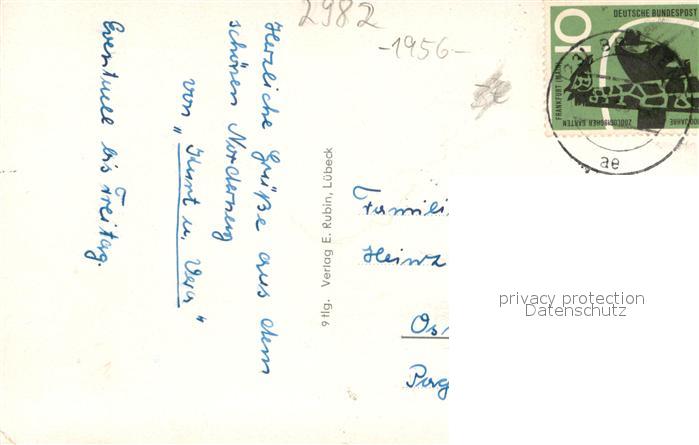 2982
-1956-
Herzliche Grüße aus dem
schönen Norderney
von „Kurt u. Vera“
Eventuell bis Freitag.
9 tlg. Verlag E. Rubin, Lübeck
10
DEUTSCHE BUNDESPOST
FRANKFURT (MAIN)
100 JAHRE
ZOOLOGISCHER GARTEN
ae
Famili
Heinz
Os
Pag
privacy protection
Datenschutz